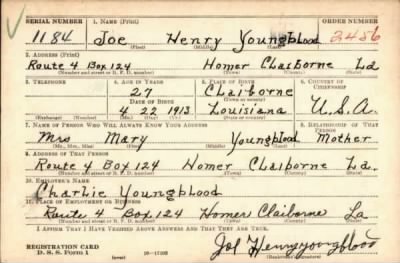 SERIAL NUMBER 1. NAME (Print) ORDER NUMBER
1184 Joe Henry Youngblood 2486
(First) (Middle) (Last)
2. ADDRESS (Print)
Route 4 Box 124 Homer Claiborne La
(Number and street or R. F. D. number) (Town) (County) (State)
3. TELEPHONE 4. AGE IN YEARS 5. PLACE OF BIRTH 6. COUNTRY OF CITIZENSHIP
27 Claiborne
DATE OF BIRTH (Town or county)
4 22 1913 Louisiana U.S.A.
(Mo.) (Day) (Yr.) (State or country)
7. NAME OF PERSON WHO WILL ALWAYS KNOW YOUR ADDRESS 8. RELATIONSHIP OF THAT PERSON
Mrs Mary Youngblood Mother
(Mr., Mrs., Miss) (First) (Middle) (Last)
9. ADDRESS OF THAT PERSON
Route 4 Box 124 Homer Claiborne La.
(Number and street or R. F. D. number) (Town) (County) (State)
10. EMPLOYER'S NAME
Charlie Youngblood
11. PLACE OF EMPLOYMENT OR BUSINESS
Route 4 Box 124 Homer Claiborne La
(Number and street or R. F. D. number) (Town) (County) (State)
I AFFIRM THAT I HAVE VERIFIED ABOVE ANSWERS AND THAT THEY ARE TRUE.
REGISTRATION CARD Joe Henry youngblood
D. S. S. Form 1 (over) (Registrant's signature)